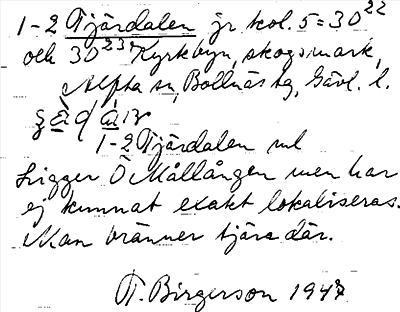 1-2 Tjärdalen jr kol. 5 = 30²²
och 30²³, Kyrkbyn, skogsmark,
Alfta sn, Bollnäs tg, Gävl. l.
1-2 Tjärdalen ml
Ligger Ö Mållången men har
ej kunnat exakt lokaliseras.
Man bränner tjära där.
T. Birgerson 1947